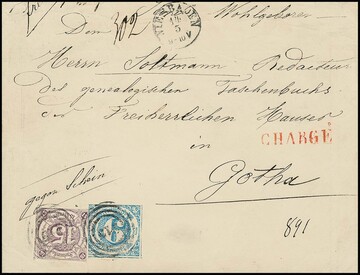 Wohlgeboren
Dem 302
WIESBADEN
Herrn Soltmann Redacteur
des genealogischen Taschenbuchs
der Freiherrlichen Häuser
in
CHARGÉ
Gotha
gegen Schein
891
15
6